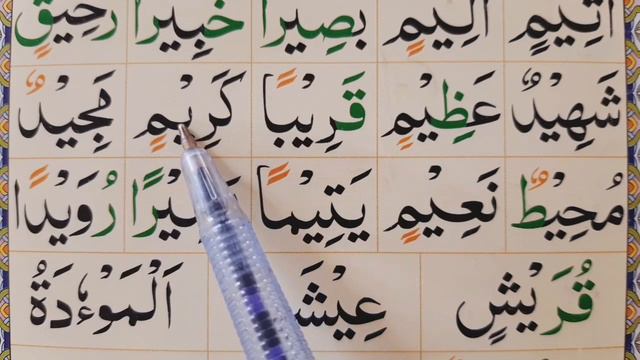 اَثِيْمٍ اَلِيْمٍ بَصِيْرًا خَبِيْرًا رَحِيْقٍ
شَهِيْدٌ عَظِيْمٍ قَرِيْبًا كَرِيْمٍ مَجِيْدٌ
مُحِيْطٌ نَعِيْمٍ يَتِيْمًا رُوَيْدًا
قُرَيْشٍ اَلْمَوْءٗدَةُ